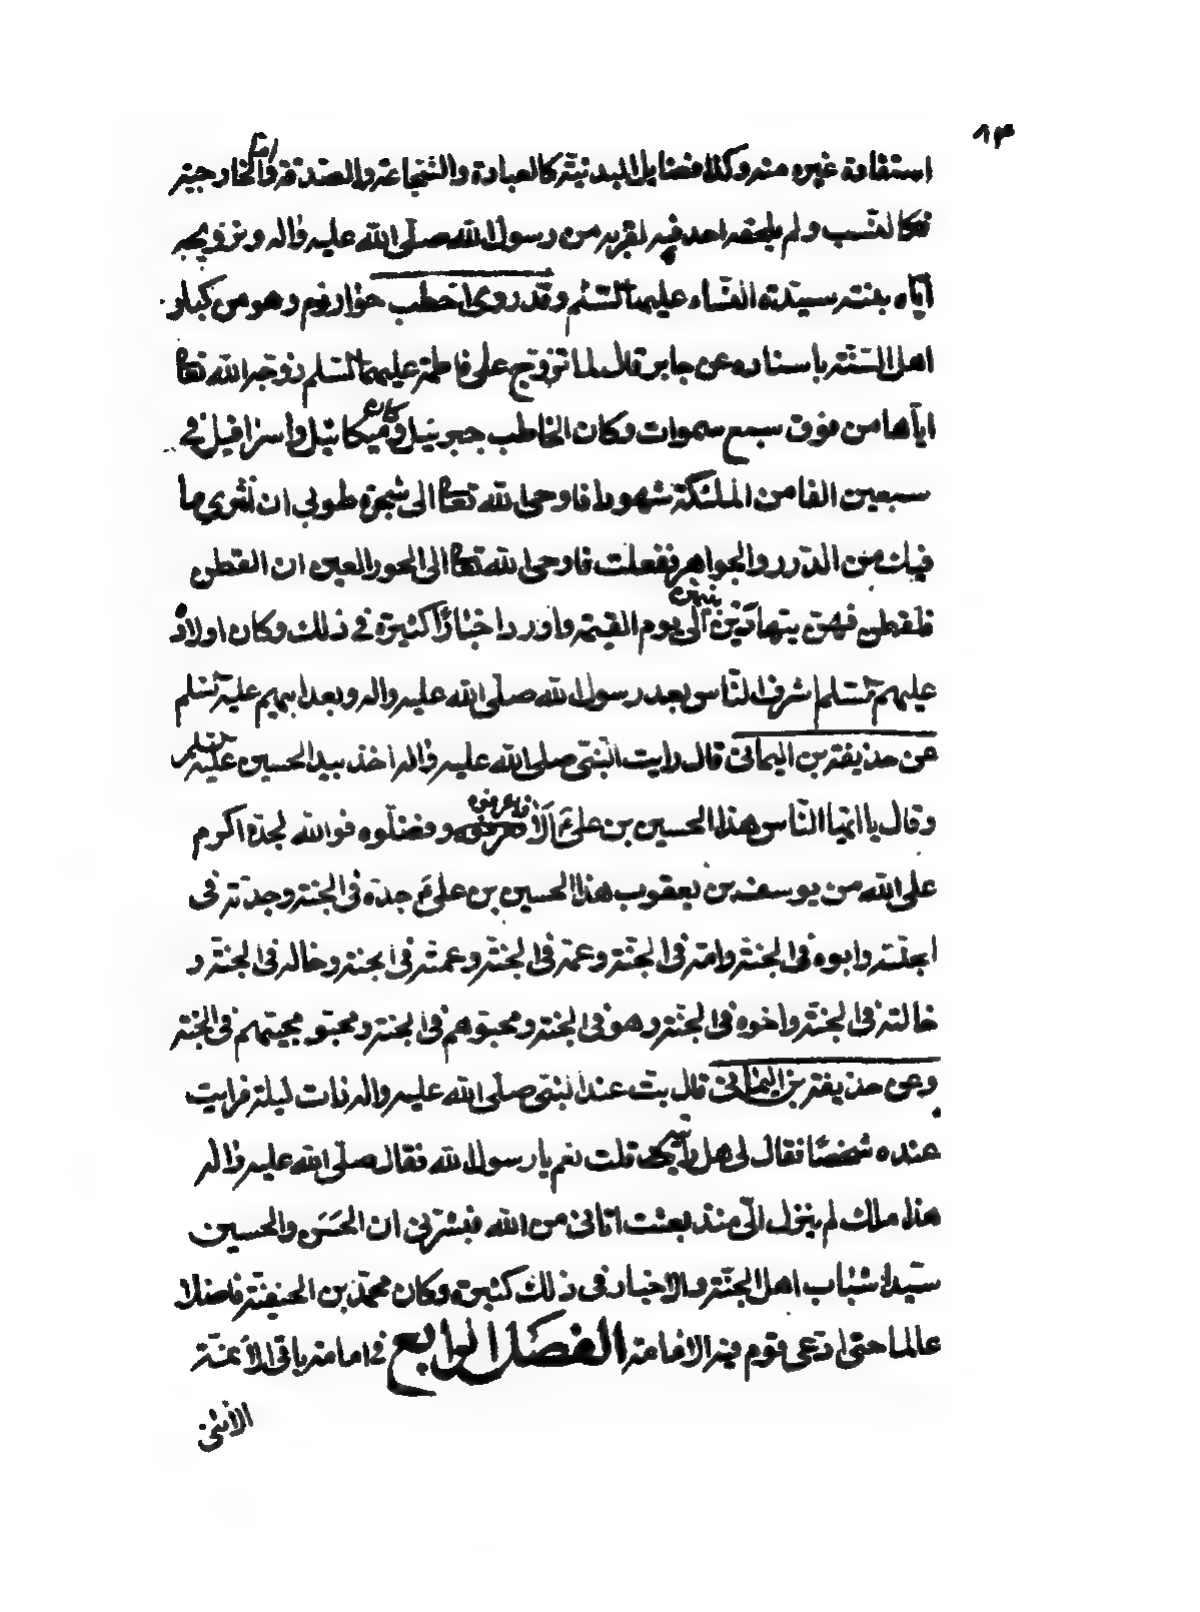 ٨٣
استفادة غيره منه وكذا فضايل البدنيّة كالعبادة والشجاعة والصدقة وامّا الخارجية
فكالنسب ولم يلحقه احد فيه لقربه من رسول الله صلّى الله عليه واله وتزويجه
ايّاه بنته سيّدة النساء عليهما السّلم وقد روى اخطب خوارزم وهو من كبار
اهل السّنّة باسناده عن جابر قال لما تزوّج علىّ فاطمة عليهما السّلم زوّجه الله تعا
ايّاها من فوق سبع سموات وكان الخاطب جبرئيل وكان ميكائيل واسرافيل في
سبعين الفا من الملئكة شهودا فاوحى الله تعا الى شجرة طوبى ان انثرى ما
فيك من الدّرر والجواهر ففعلت فاوحى الله تعا الى الحور العين ان القطن
فلقطن فهنّ يتهادين بينهنّ الى يوم القيمة واورد اخبارًا كثيرة في ذلك وكان اولاده
عليهم السّلم اشرف النّاس بعد رسول الله صلّى الله عليه واله وبعد ابيهم عليه السّلم
عن حذيفة بن اليمانى قال رايت النّبىّ صلى الله عليه واله اخذ بيد الحسين عليه السّلم
وقال يا ايّها النّاس هذا الحسين بن علىّ ع ألا فاعرفوه وفضّلوه فوالله لجدّه اكرم
على الله من يوسف بن يعقوب هذا الحسين بن علىّ ع جدّه فى الجنة وجدّته فى
الجنّة وابوه فى الجنّة وامّه فى الجنّة وعمّه فى الجنّة وعمّته فى الجنة وخاله فى الجنّة و
خالته فى الجنّة واخوه فى الجنّة وهو فى الجنة ومحبّوهم فى الجنة ومحبّو محبّيهم فى الجنة
وعن حذيفة بن اليمانى قال بتّ عند النبىّ صلّى الله عليه واله ذات ليلة فرايت
عنده شخصًا فقال لى هل رأيت قلت نعم يا رسول الله فقال صلّى الله عليه واله
هذا ملك لم ينزل الىّ منذ بعثت اتانى من الله فبشّرنى ان الحسن والحسين
سيّدا شباب اهل الجنّة والاخبار فى ذلك كثيرة وكان محمّد بن الحنفيّة فاضلا
عالما حتى ادّعى قوم فيه الامامة الفصل الرابع في امامة باقى الأئمّة
الاثنى